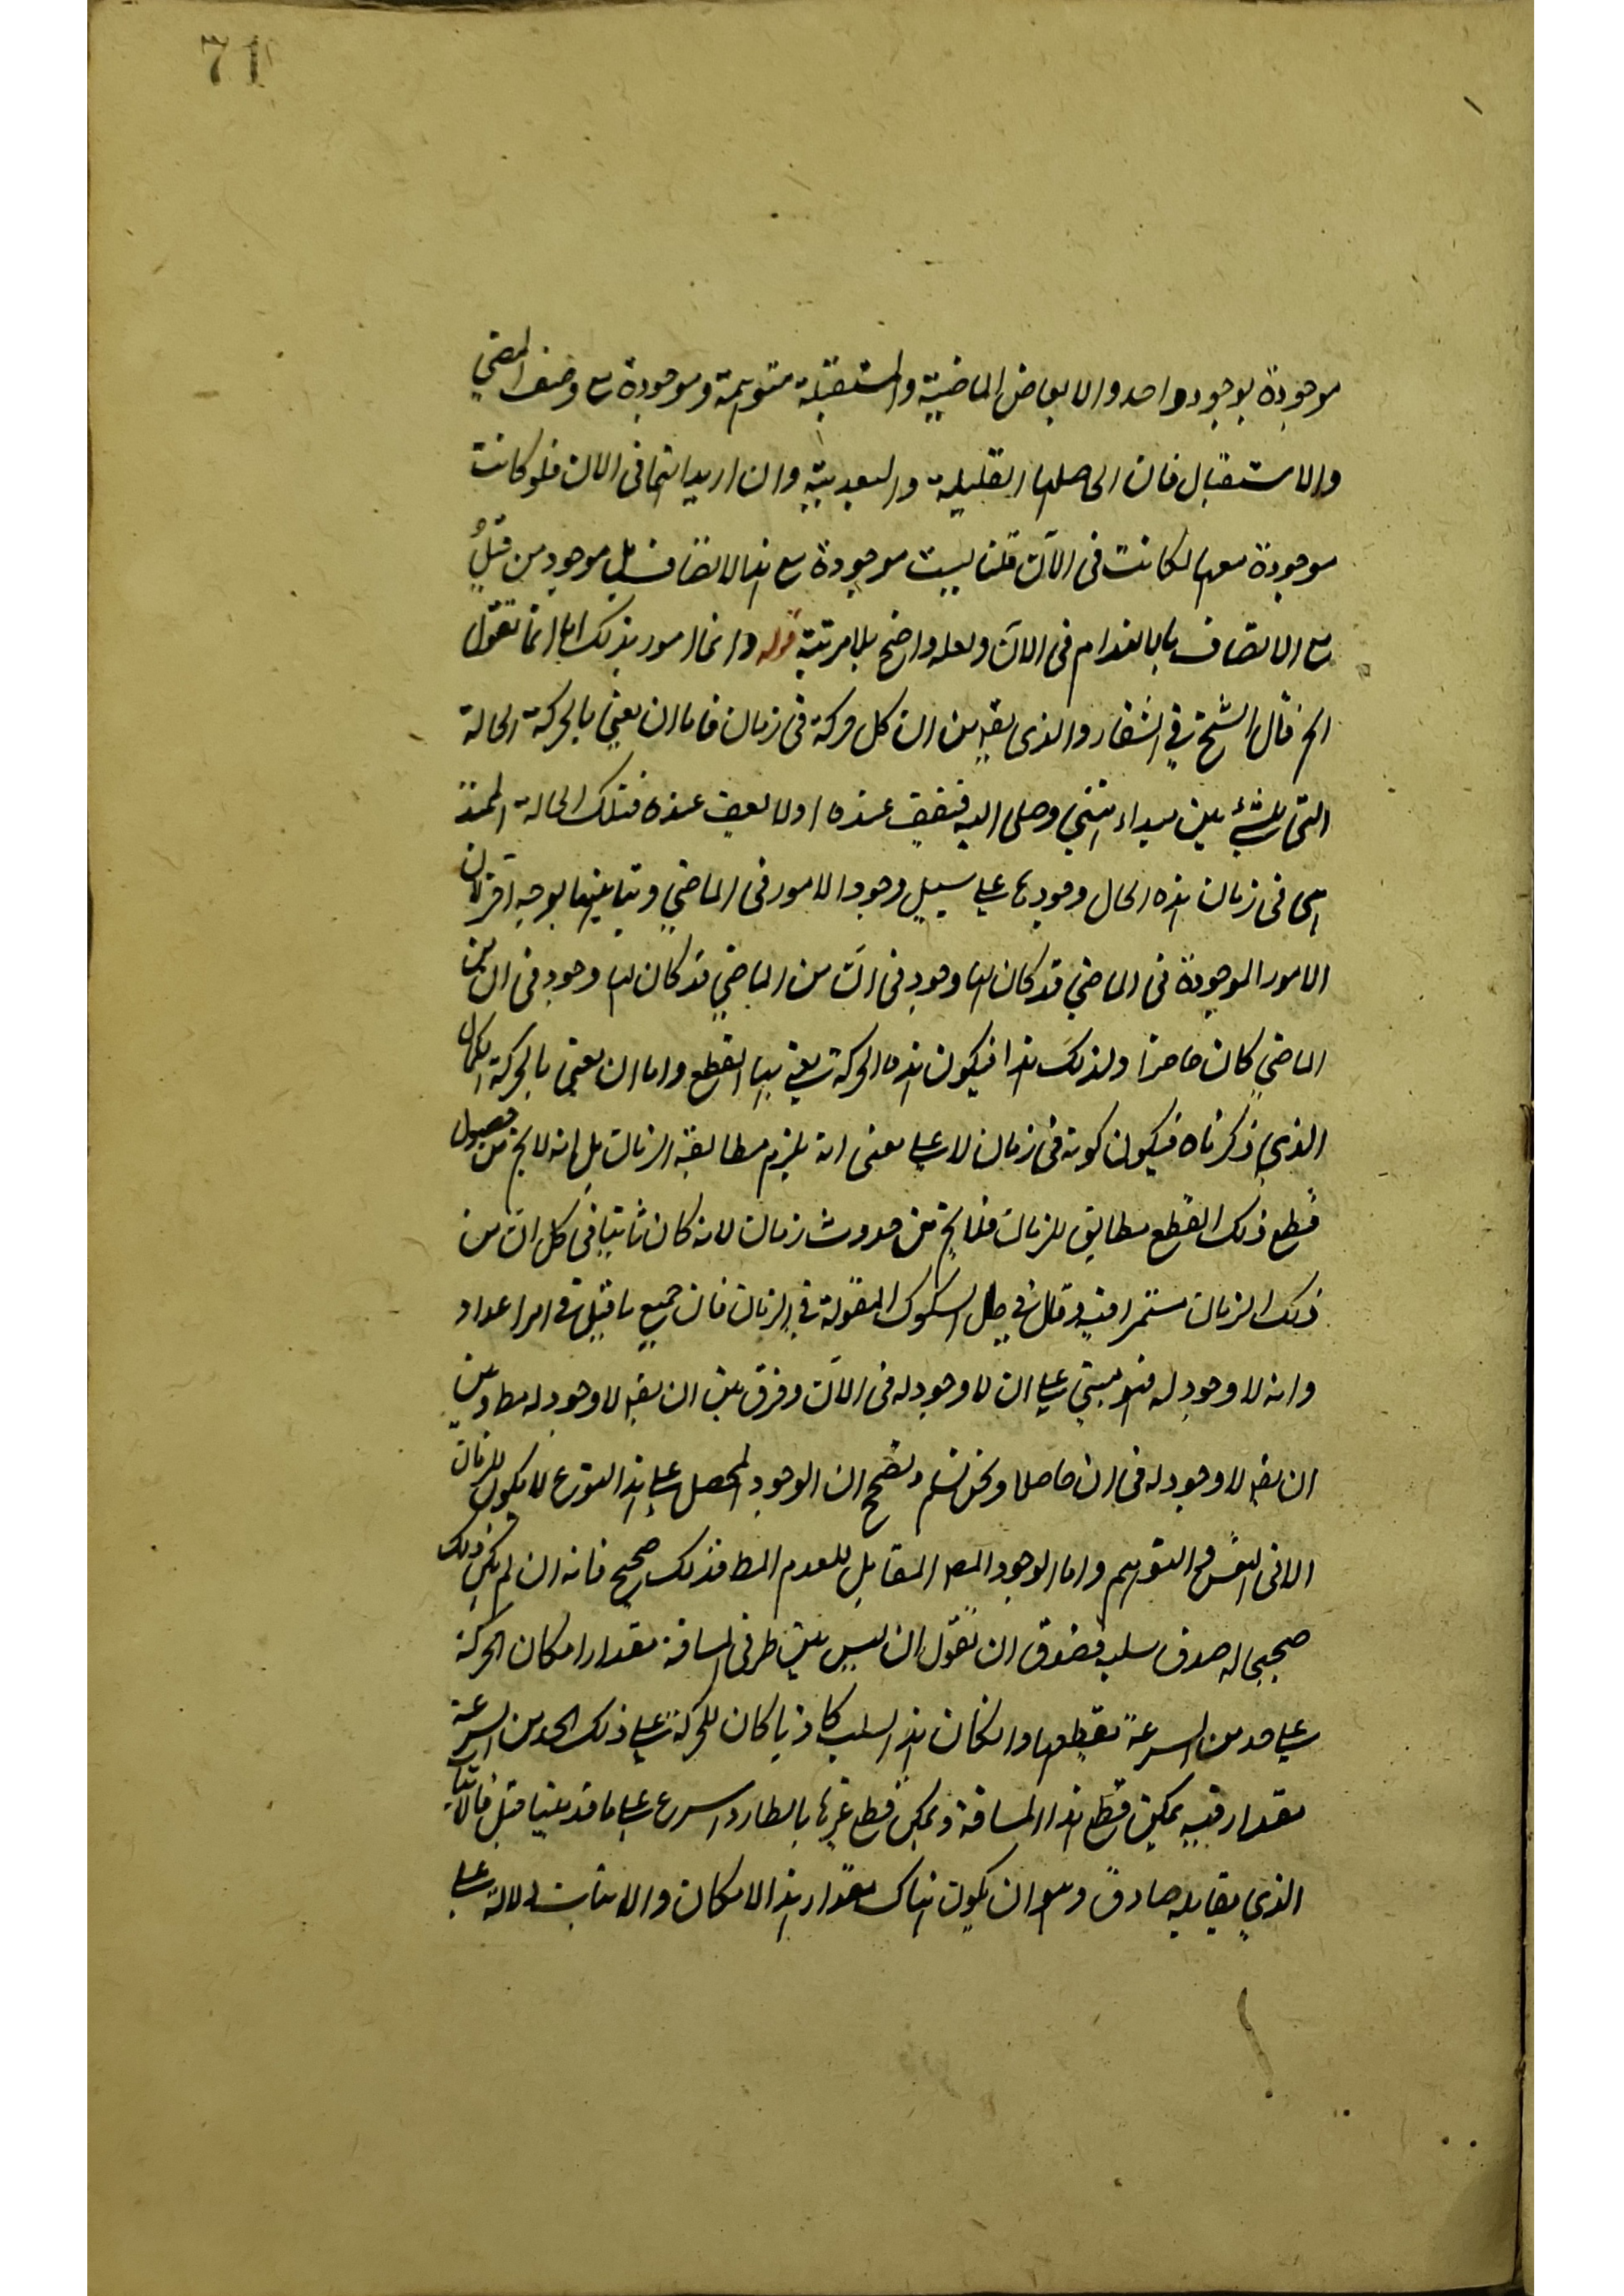 71
موجودة بوجود واحد والابعاض الماضية والمستقبلة متوهمة وموجودة مع وصف المضي
والاستقبال فان الحاصلها القبلية والبعدية وان اريد انها فى الان فلو كانت
موجودة معها لكانت فى الآن قلنا ليست موجودة مع هذا الاتصاف بل موجود من قبل
مع الاتصاف بالانعدام فى الآن ولعله واضح بلا مرتبة قوله وانما امور بذلك انما نقول
الخ قال الشيخ في الشفاء والذى يقه من ان كل حركة فى زمان فاما ان يعنى بالحركة الحالة
التى للشئ بين مبداء ومنتهى وصل اليه فيقف عنده اولا يقف عنده فتلك الحالة الممتدة
هى فى زمان هذه الحال وجودها على سبيل وجود الامور فى الماضي وتباينها بوجه اخر لان
الامور الموجودة فى الماضي قد كان لها وجود فى آن من الماضي قد كان لها وجود فى ان من
الماضي كان حاضرا ولذلك هذا فيكون هذه الحركة يعنى بها القطع واما ان يعنى بالحركة الكمال
الذي ذكرناه فيكون كونه فى زمان لا على معنى انه يلزم مطابقة الزمان بل انه لا يخ من حصول
قطع ذلك القطع مطابق للزمان فلا يخ من حدوث زمان لانه كان ثابتا فى كل ان من
ذلك الزمان مستمرا فيه وقال في حل الشكوك المقولة في الزمان فان جميع ما قيل في امر اعداد
وانه لا وجود له فهو مبني على ان لا وجود له فى الآن وفرق بين ان يقه لا وجود له مطا وبين
ان يقه لا وجود له فى ان حاصلا ونحن نسلم ونصحح ان الوجود المحصل على هذا النوع لا يكون للزمان
الا فى النفس والتوهم واما الوجود المط المقابل للعدم المط فذلك صحيح فانه ان لم يكن ذلك
صحيحا له صدق سلبه فصدق ان نقول ان ليس بين طرفى المسافة مقدار امكان الحركة
على حد من السرعة يقطعها وان كان هذا السلب كاذبا كان للحركة على ذلك الحد من السرعة
مقدار فيه يمكن قطع هذا المسافة ويمكن قطع غيرها بابطاء واسرع على ما قد بينا قبل فالاثبات
الذي يقابله صادق وهو ان يكون هناك مقدار هذا الامكان والاثبات دلالة على